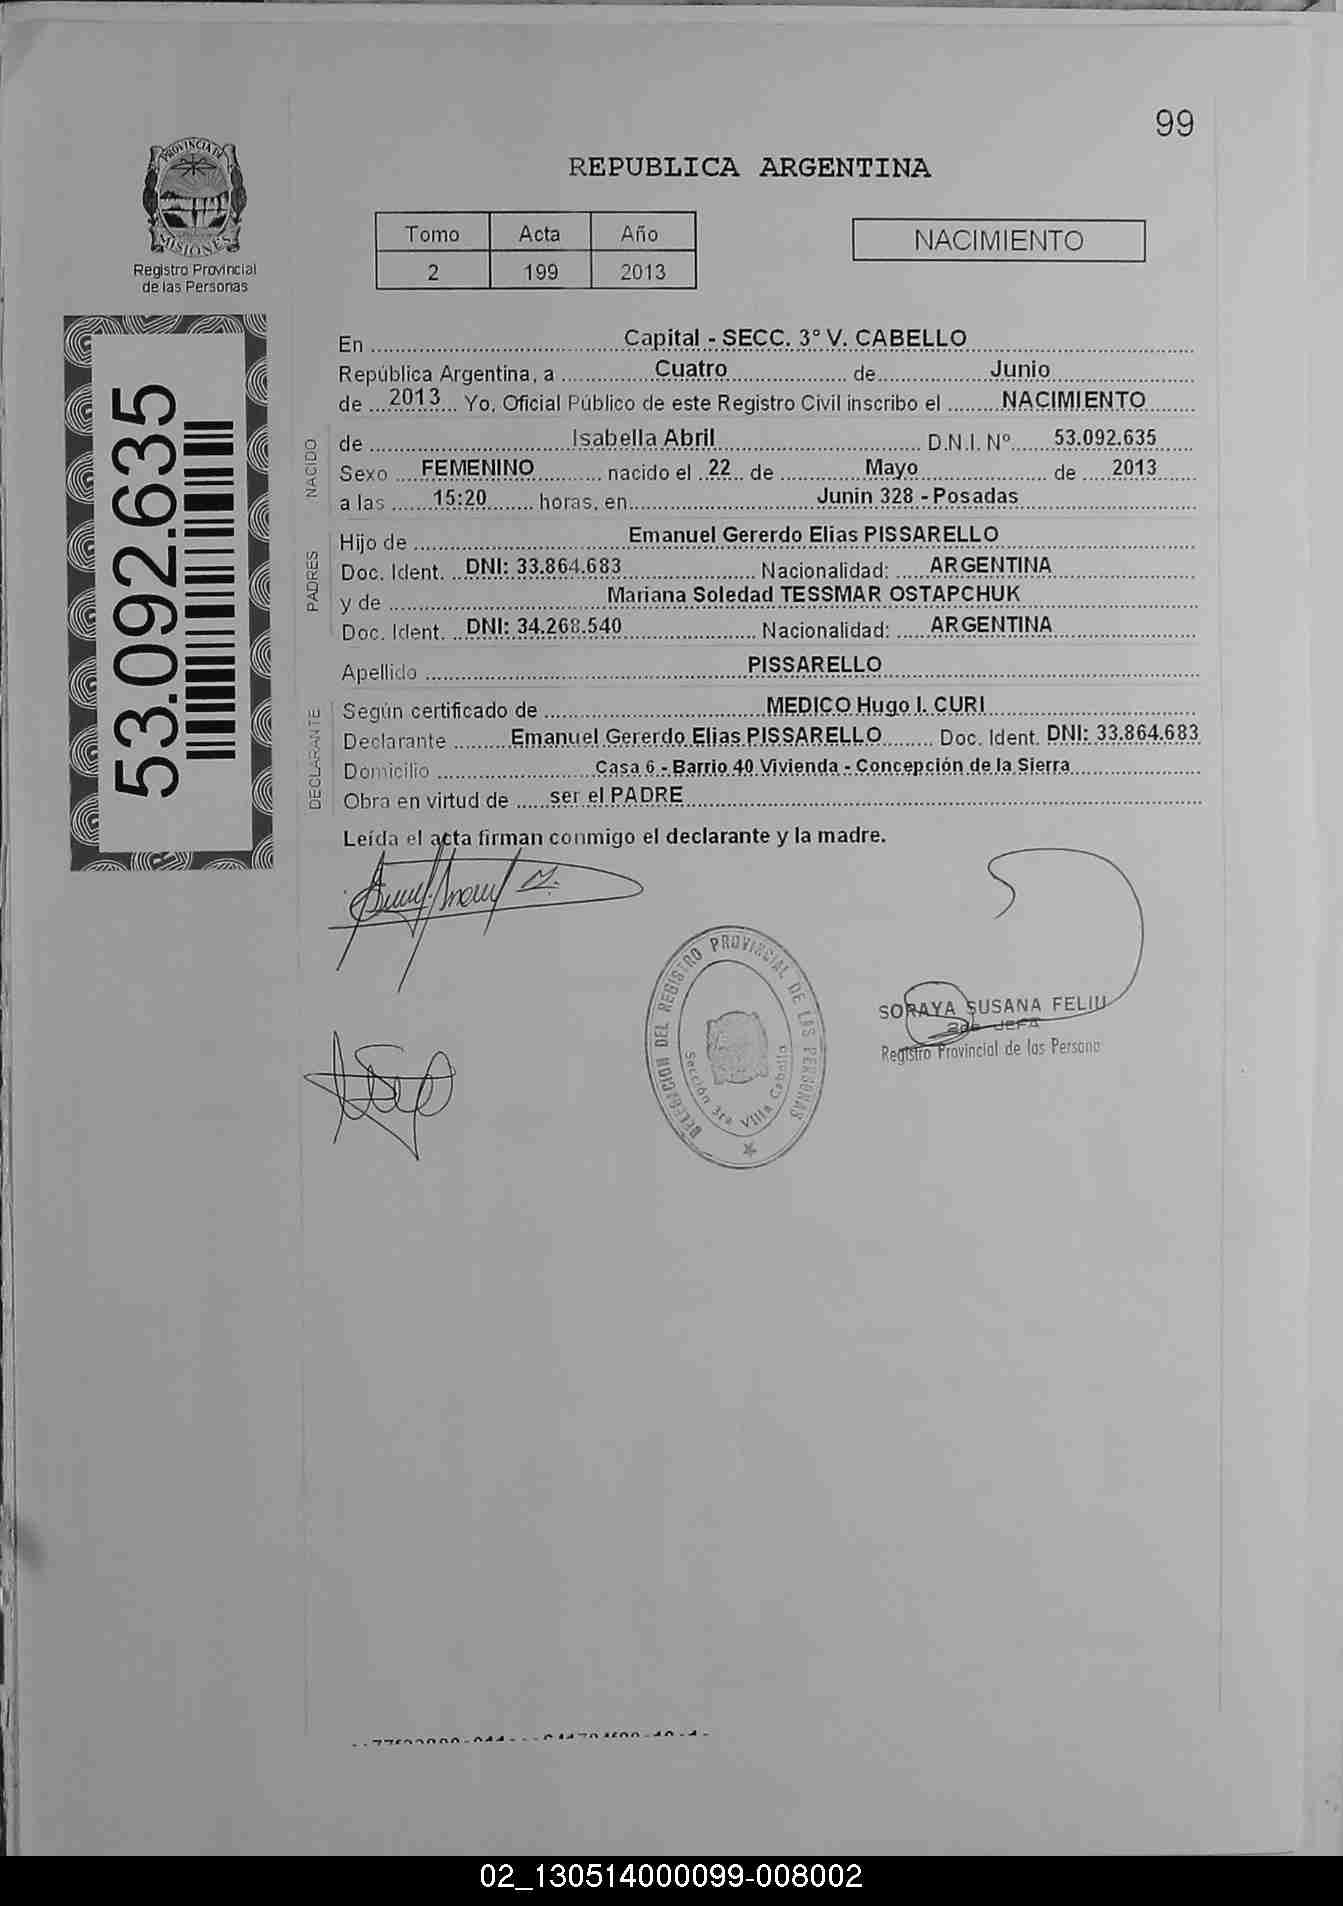 99
PROVINCIA DE
MISIONES
Registro Provincial
de las Personas
REPUBLICA ARGENTINA
Tomo Acta Año
2 199 2013
NACIMIENTO
53.092.635
En Capital - SECC. 3° V. CABELLO
República Argentina, a Cuatro de Junio
de 2013 Yo, Oficial Público de este Registro Civil inscribo el NACIMIENTO
NACIDO
de Isabella Abril D.N.I. Nº 53.092.635
Sexo FEMENINO nacido el 22 de Mayo de 2013
a las 15:20 horas, en Junin 328 - Posadas
PADRES
Hijo de Emanuel Gererdo Elias PISSARELLO
Doc. Ident. DNI: 33.864.683 Nacionalidad: ARGENTINA
y de Mariana Soledad TESSMAR OSTAPCHUK
Doc. Ident. DNI: 34.268.540 Nacionalidad: ARGENTINA
Apellido PISSARELLO
DECLARANTE
Según certificado de MEDICO Hugo I. CURI
Declarante Emanuel Gererdo Elias PISSARELLO Doc. Ident. DNI: 33.864.683
Domicilio Casa 6 - Barrio 40 Vivienda - Concepción de la Sierra
Obra en virtud de ser el PADRE
Leída el acta firman conmigo el declarante y la madre.
DELEGACION DEL REGISTRO PROVINCIAL DE LAS PERSONAS
Sección 3ra Villa Cabello
SORAYA SUSANA FELIU
2da JEFA
Registro Provincial de las Persona
02_130514000099-008002